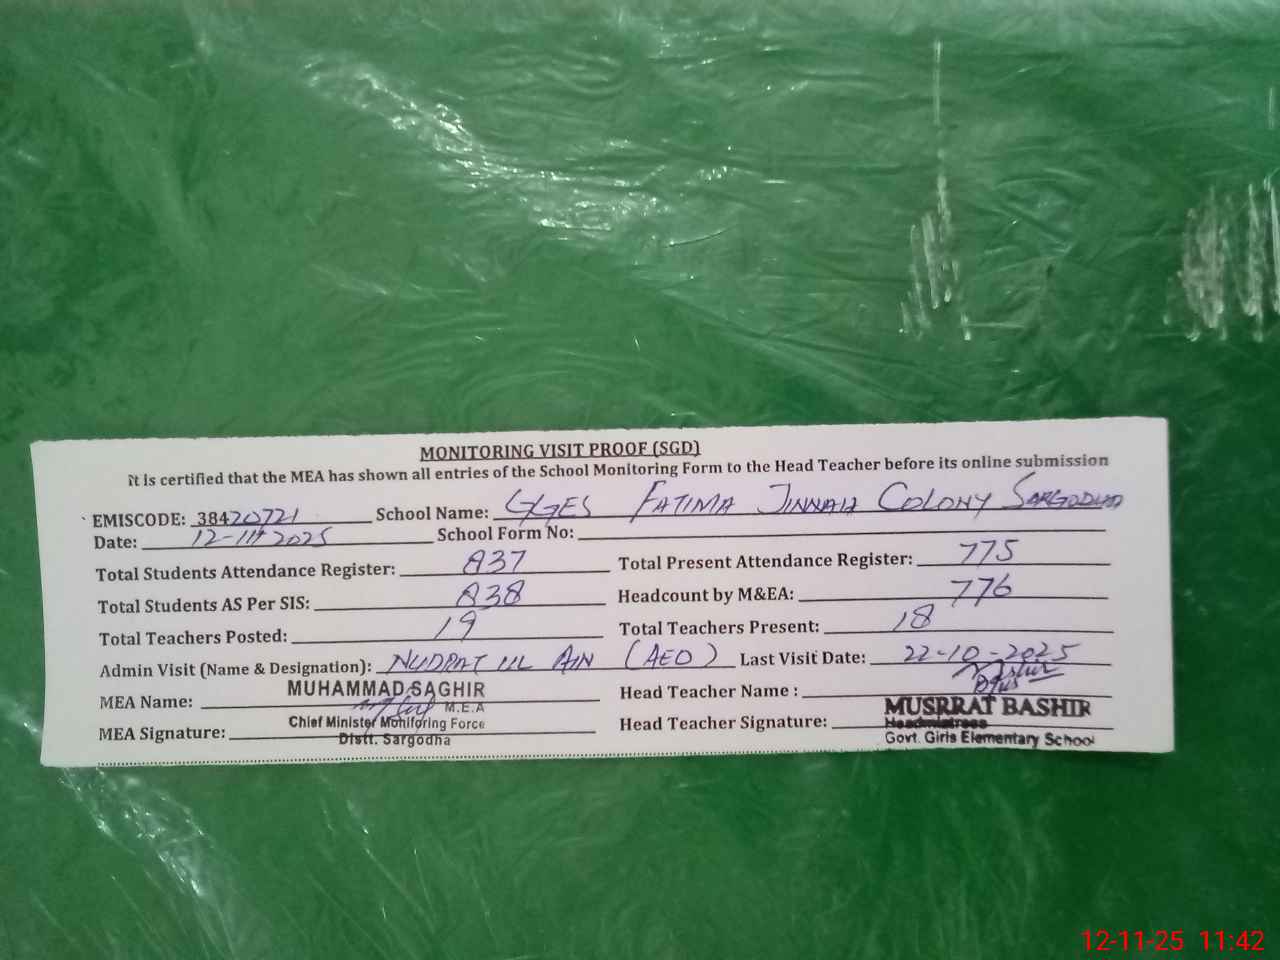 MONITORING VISIT PROOF (SGD)
It is certified that the MEA has shown all entries of the School Monitoring Form to the Head Teacher before its online submission
EMISCODE: 38420721 School Name: GGES FATIMA JINNAH COLONY SARGODHA
Date: 12-11-2025 School Form No:
Total Students Attendance Register: 837 Total Present Attendance Register: 775
Total Students AS Per SIS: 838 Headcount by M&EA: 776
Total Teachers Posted: 19 Total Teachers Present: 18
Admin Visit (Name & Designation): NUDRAT UL AIN (AEO) Last Visit Date: 22-10-2025
MEA Name: MUHAMMAD SAGHIR Head Teacher Name :
M.E.A MUSRRAT BASHIR
MEA Signature: Chief Minister Monitoring Force Head Teacher Signature: Headmistress
Distt. Sargodha Govt. Girls Elementary School
12-11-25 11:42